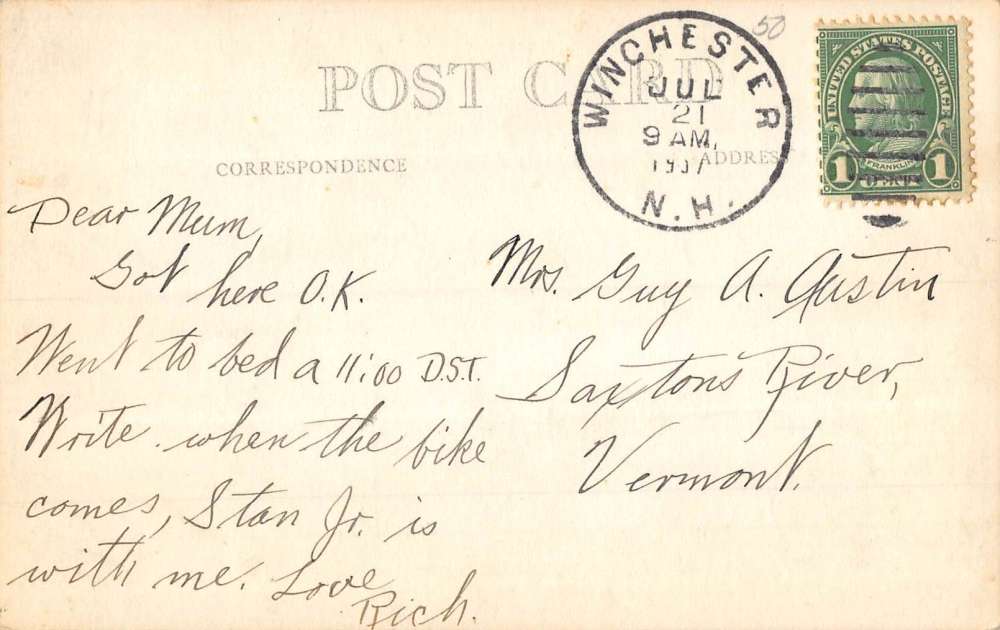 50
POST CARD
WINCHESTER
JUL
21
9 AM.
1937
N.H.
UNITED STATES POSTAGE
FRANKLIN
1 CENT 1
CORRESPONDENCE
ADDRESS
Dear Mum,
Got here O.K.
Went to bed a 11:00 D.S.T.
Write when the bike
comes, Stan Jr. is
with me. Love
Rich.
Mrs. Guy A. Austin
Saxtons River,
Vermont.